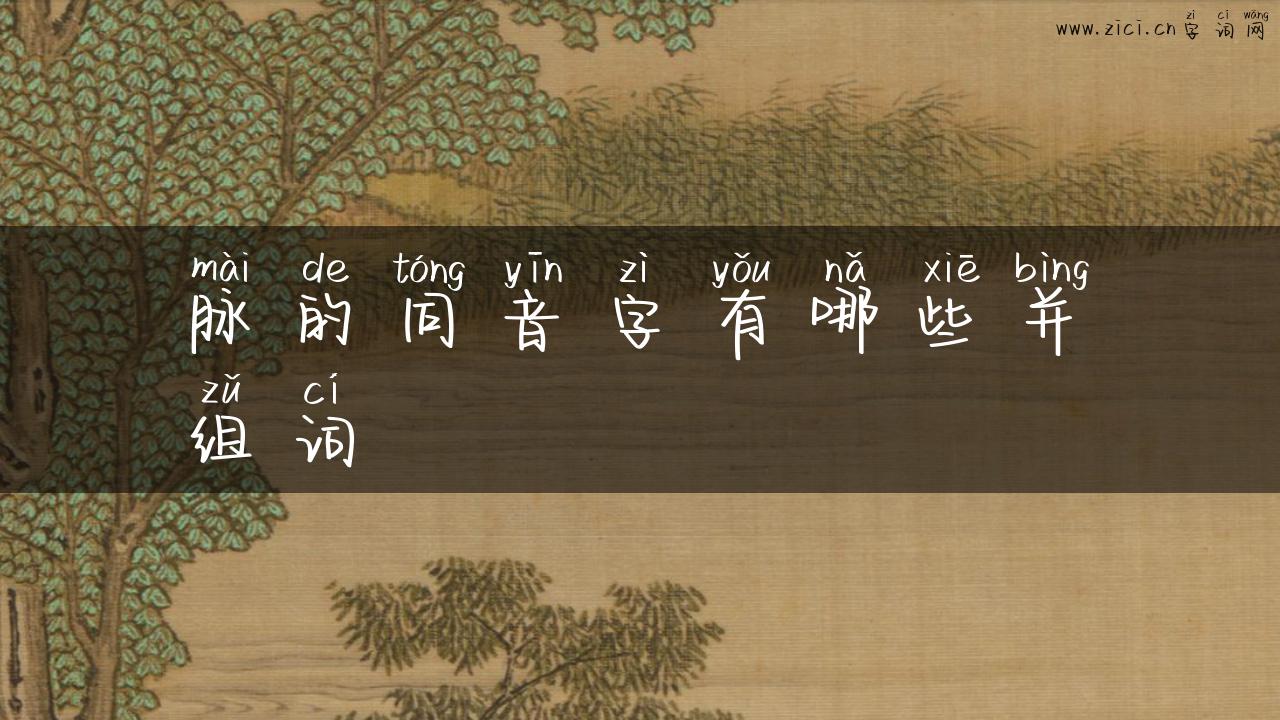 zì cí wǎng
www.zici.cn字词网
mài de tóng yīn zì yǒu nǎ xiē bìng
脉的同音字有哪些并
zǔ cí
组词